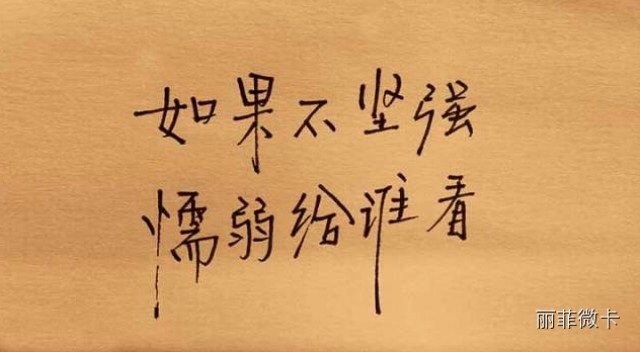 如果不坚强
懦弱给谁看
丽菲微卡